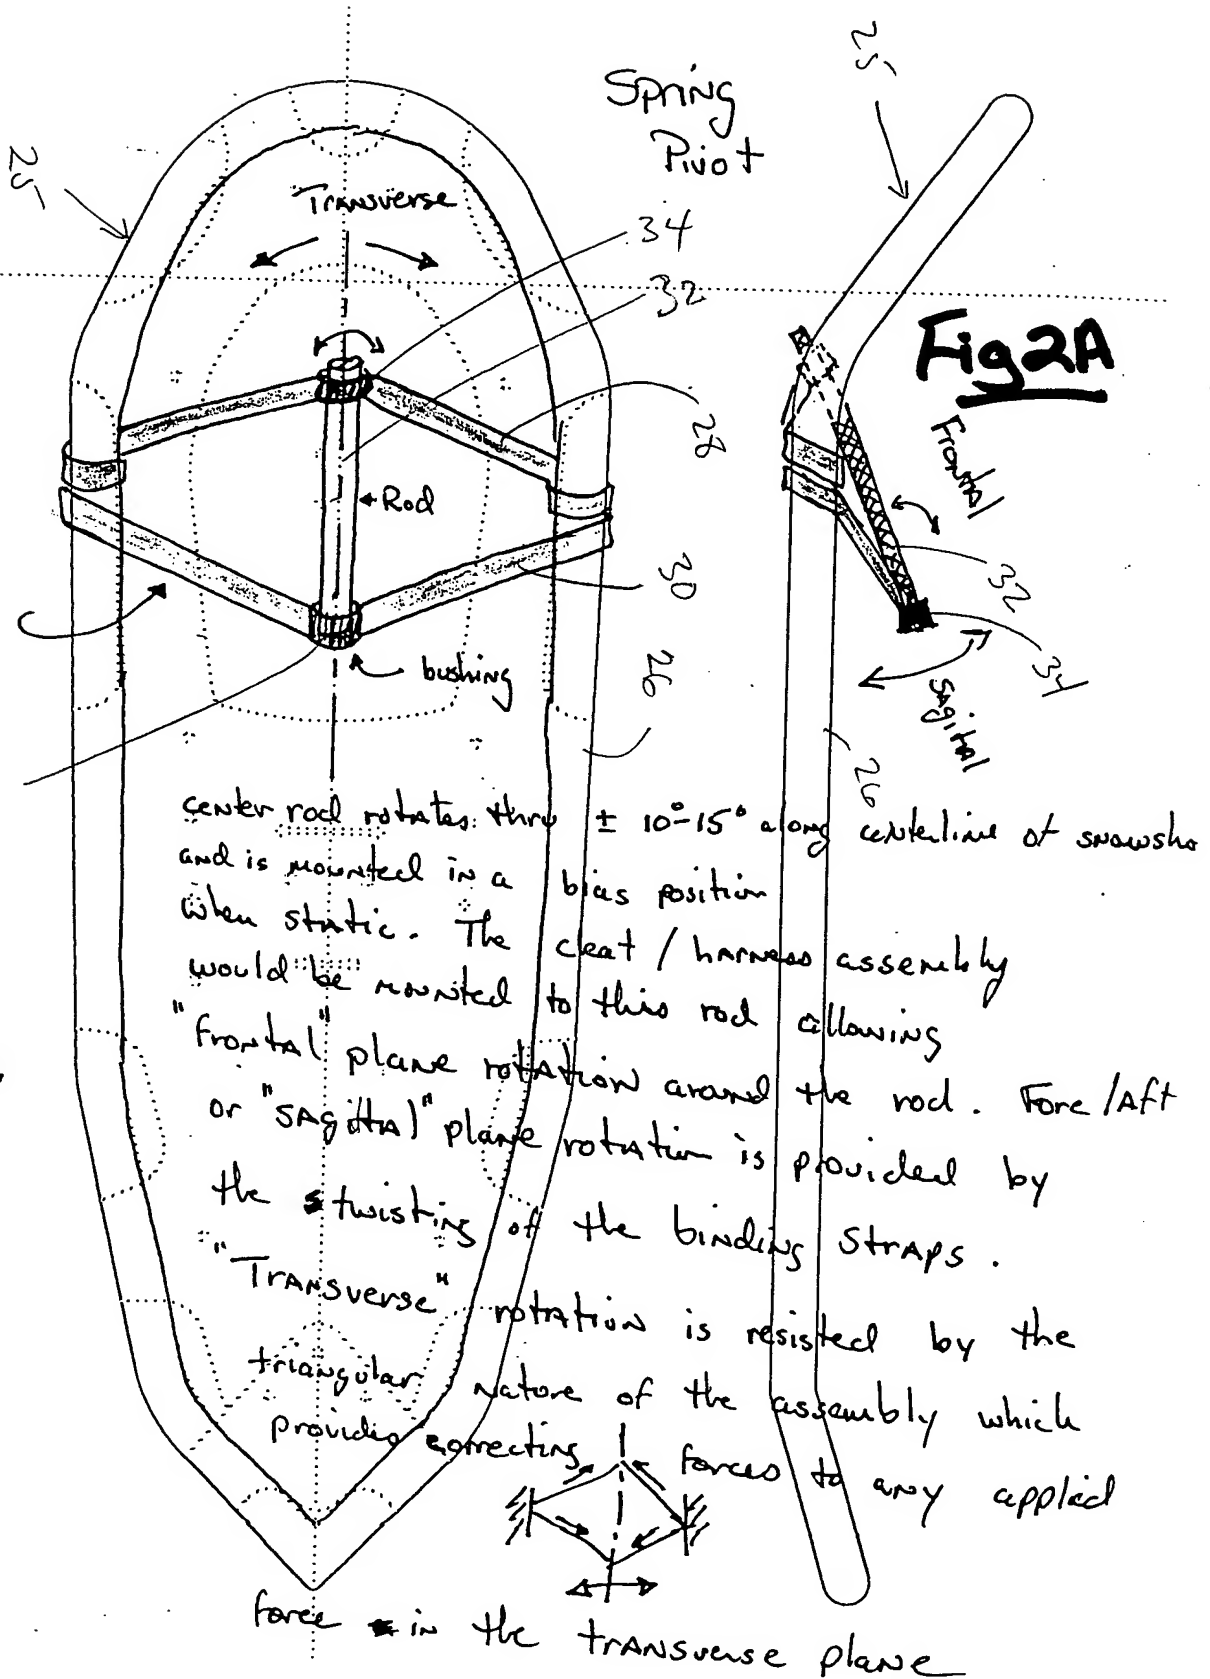 Spring
Pivot
25
25
Transverse
34
32
Fig2A
Frontal
28
Rod
30
32
34
bushing
26
Sagital
26
center rod rotates thru ± 10°-15° along centerline of snowsho
and is mounted in a bias position
when static. The cleat / harness assembly
would be mounted to this rod allowing
"frontal" plane rotation around the rod. Fore/Aft
or "sagittal" plane rotation is provided by
the twisting of the binding straps.
"Transverse" rotation is resisted by the
triangular nature of the assembly which
provides correcting forces to any applied
force in the transverse plane